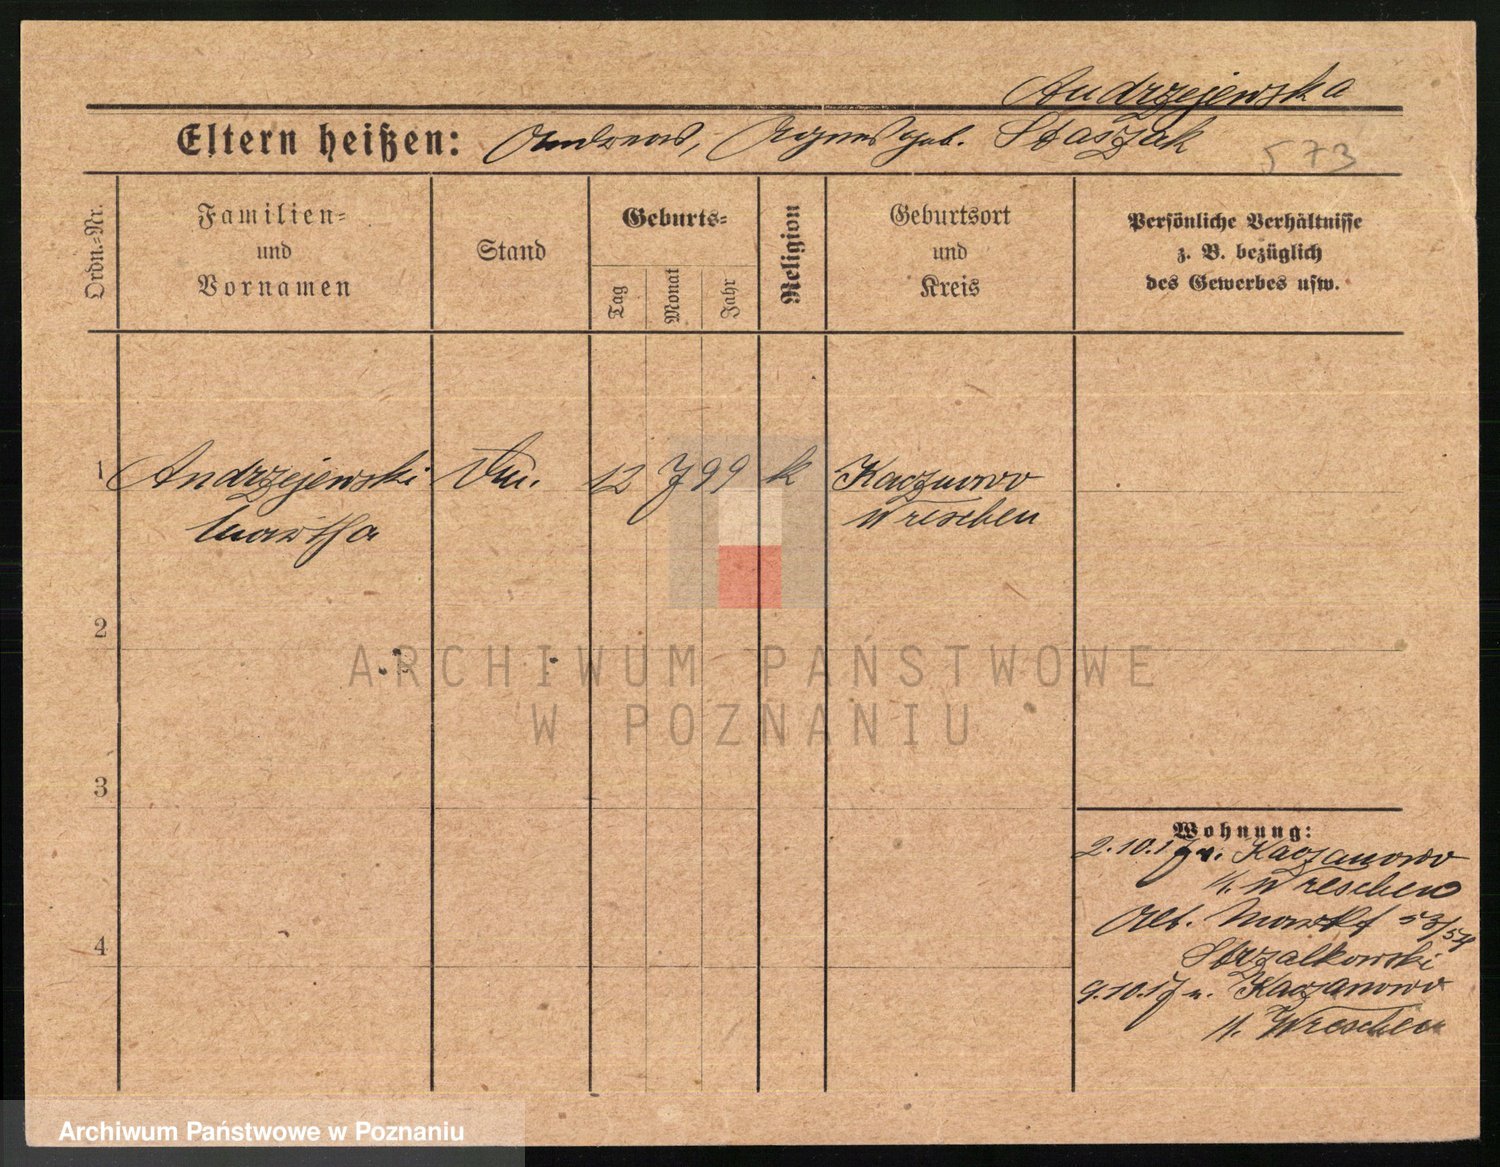 Andrzejewska
Eltern heißen: Andreas, Agnes geb. Staszak
573
Ordn.-Nr.
Familien-
und
Vornamen
Stand
Geburts-
Tag
Monat
Jahr
Religion
Geburtsort
und
Kreis
Persönliche Verhältnisse
z. B. bezüglich
des Gewerbes usw.
1 Andrzejewski 12 7 99 k Kaczanowo
Martha Wreschen
2
ARCHIWUM PAŃSTWOWE
W POZNANIU
3
Wohnung:
2.10.17 v. Kaczanowo
Wreschen
Alt. Markt 53/54
Strzalkowski
9.10.17 n. Kaczanowo
Wreschen
4
Archiwum Państwowe w Poznaniu